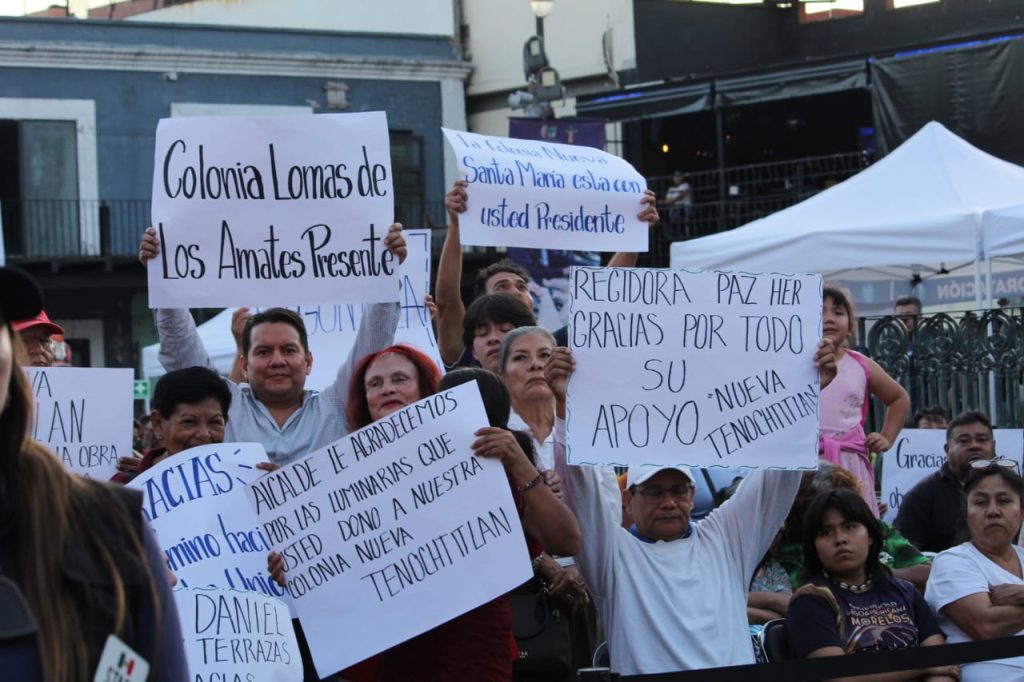 Colonia Lomas de
Los Amates Presente
La Colonia Nueva
Santa María esta con
usted Presidente
REGIDORA PAZ HER
GRACIAS POR TODO
SU
APOYO "NUEVA
TENOCHTITLAN
ALCALDE LE AGRADECEMOS
POR LAS LUMINARIAS QUE
USTED DONO A NUESTRA
COLONIA NUEVA
TENOCHTITLAN
YA
LAN
NA OBRA
ACIAS
mino haci
DANIEL
TERRAZAS
Gracias
MORELOS